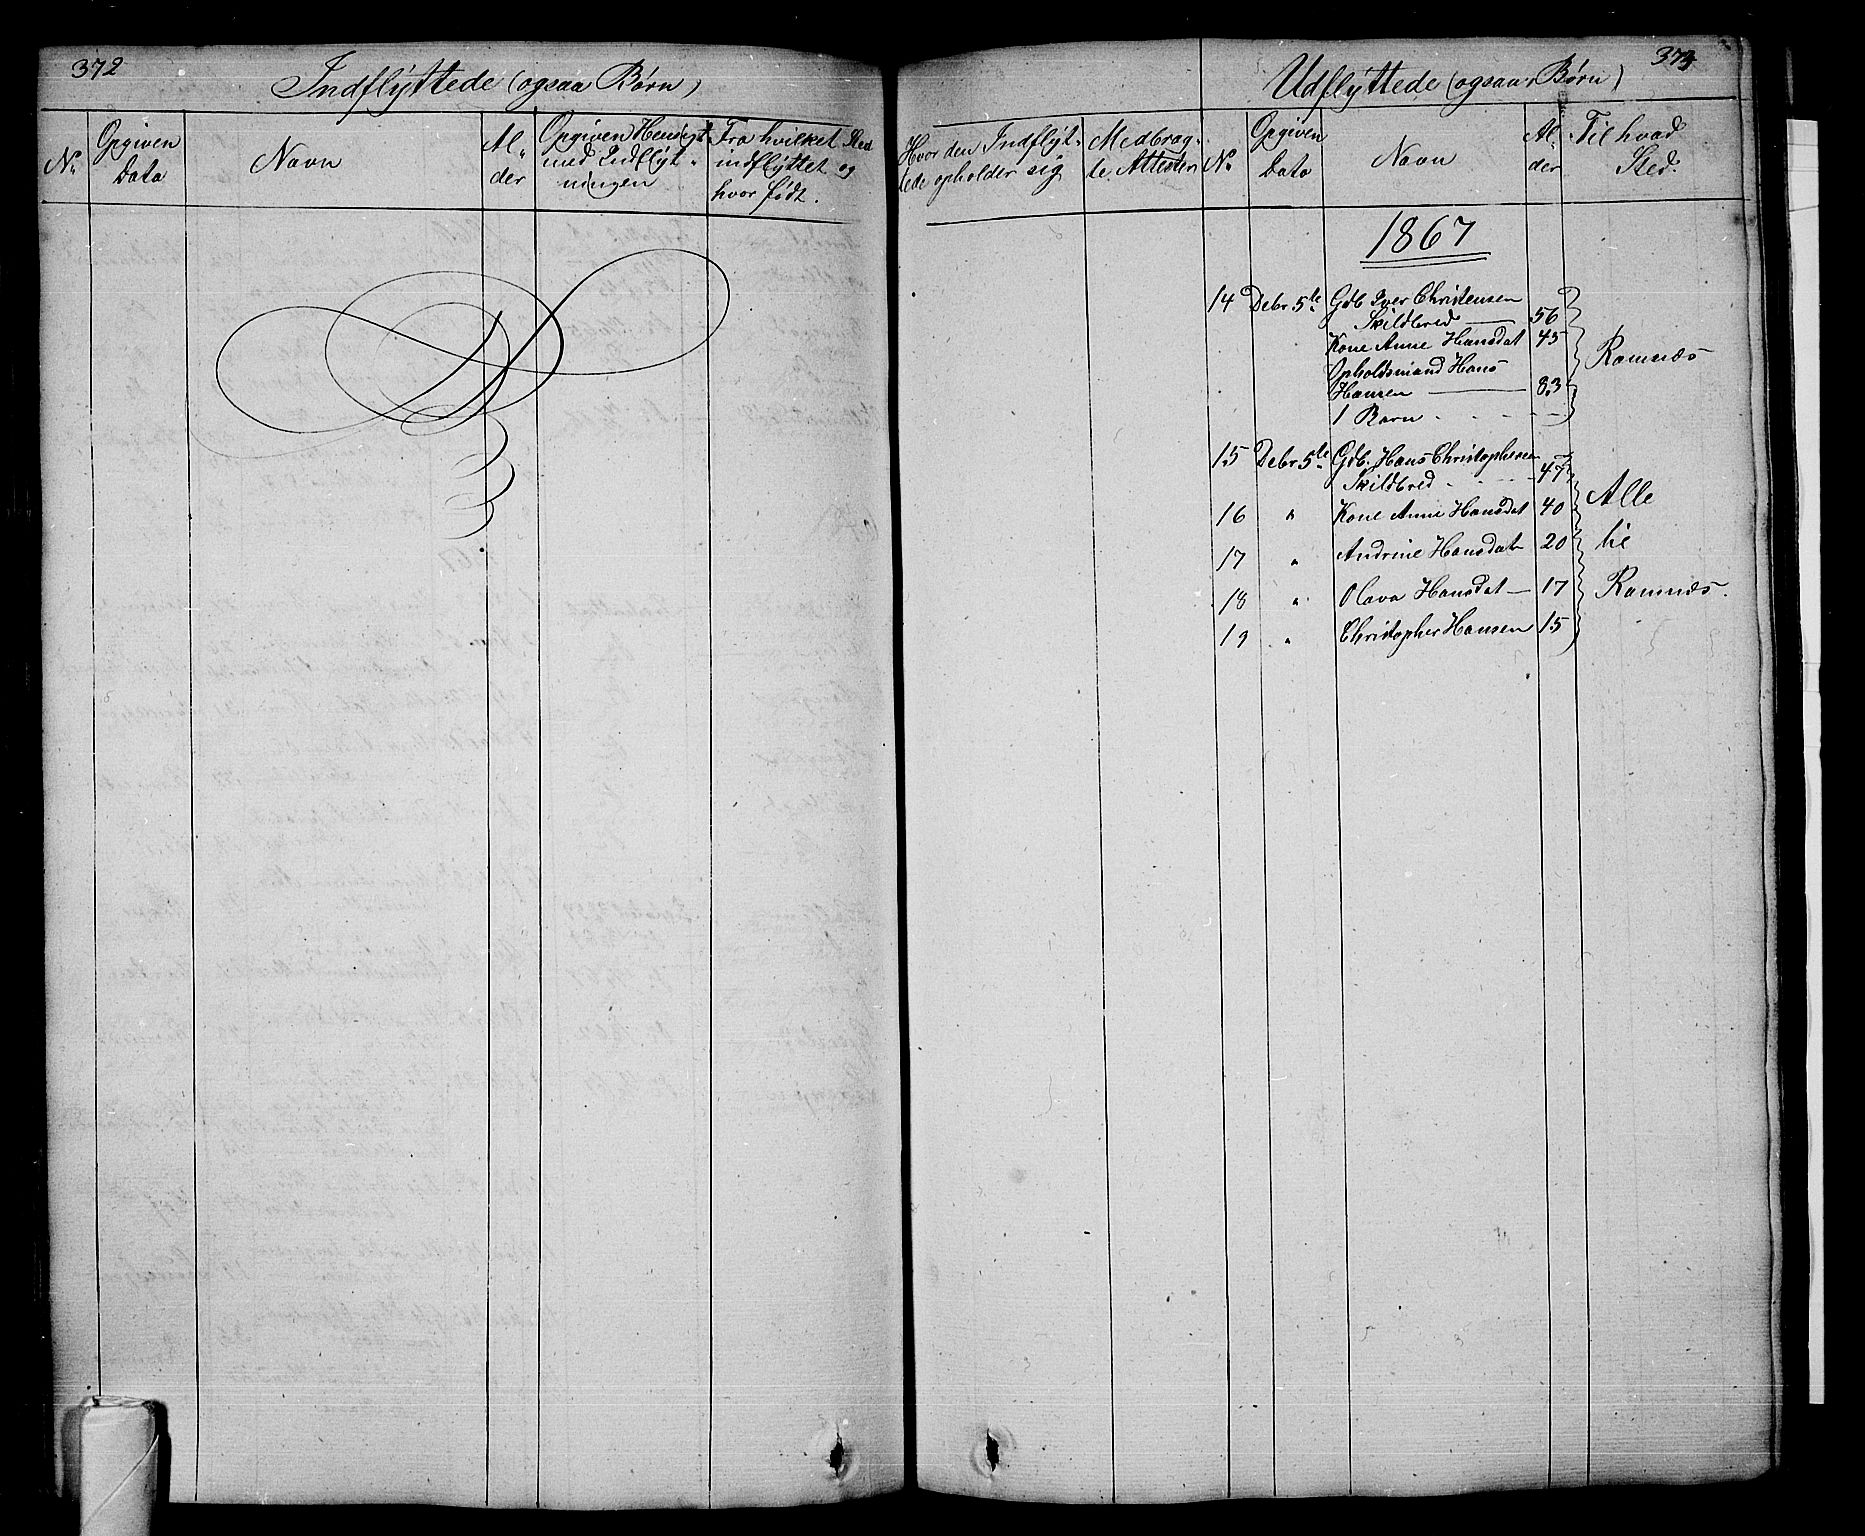 372
Indflyttede (ogsaa Børn)
No
Opgiven Data
Navn
Al-der
Opgiven Hensigt med Indflyt-ningen
Fra hvilket Sted indflyttet og hvor født.
373
Udflyttede (ogsaa Børn)
Hvor den Indflyt-tede opholder sig
Medbrag-te Attester
No
Opgiven Data
Navn
Al-der
Til hvad Sted.
1867
14 Debr 5te Gdb Iver Christensen
Skildbred 56
Kone Anne Hansdat 45
Opholdsmand Hans
Hansen 83
1 Barn
Ramnæs
15 Debr 5te Gdb. Hans Christophersen
Skildbred 47
16 " Kone Anne Hansdat 40
17 " Andrine Hansdat 20
18 " Olava Hansdat 17
19 " Christopher Hansen 15
Alle
til
Ramnæs.